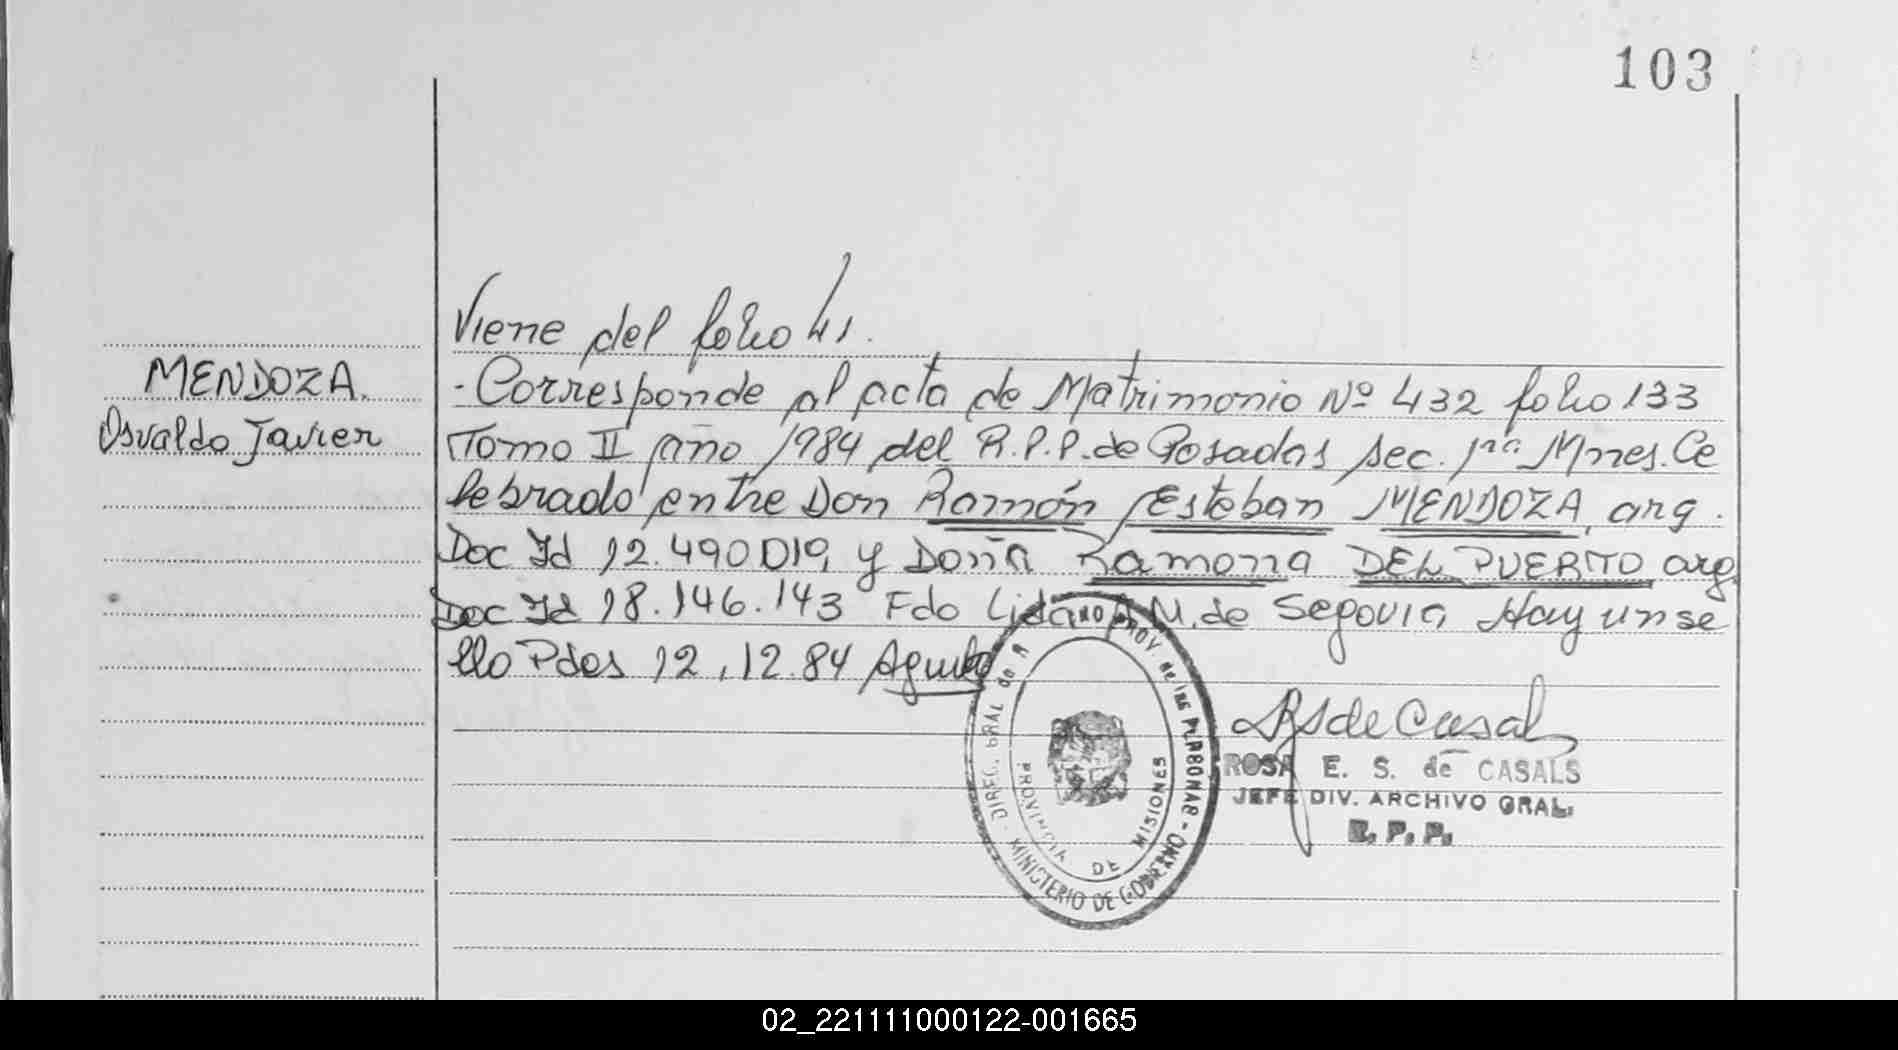 103
Viene del folio 41.
MENDOZA.
Osvaldo Javier
- Corresponde al acta de Matrimonio Nº 432 folio 133
Tomo II año 1984 del R.P.P. de Posadas sec. 1ra Mnes. Ce
lebrado entre Don Ramón Esteban MENDOZA, arg.
Doc Id 12.490019 y Doña Ramona DEL PUERTO arg.
Doc Id 18.146.143 Fdo N. de Segovia Hay un se
llo Pdas 12.12.84
DIREC. GRAL de PROV de las PERSONAS - MINISTERIO DE GOBIERNO
PROVINCIA DE MISIONES
RS de Casals
ROSA E. S. de CASALS
JEFE DIV. ARCHIVO GRAL.
R. P. P.
02_221111000122-001665